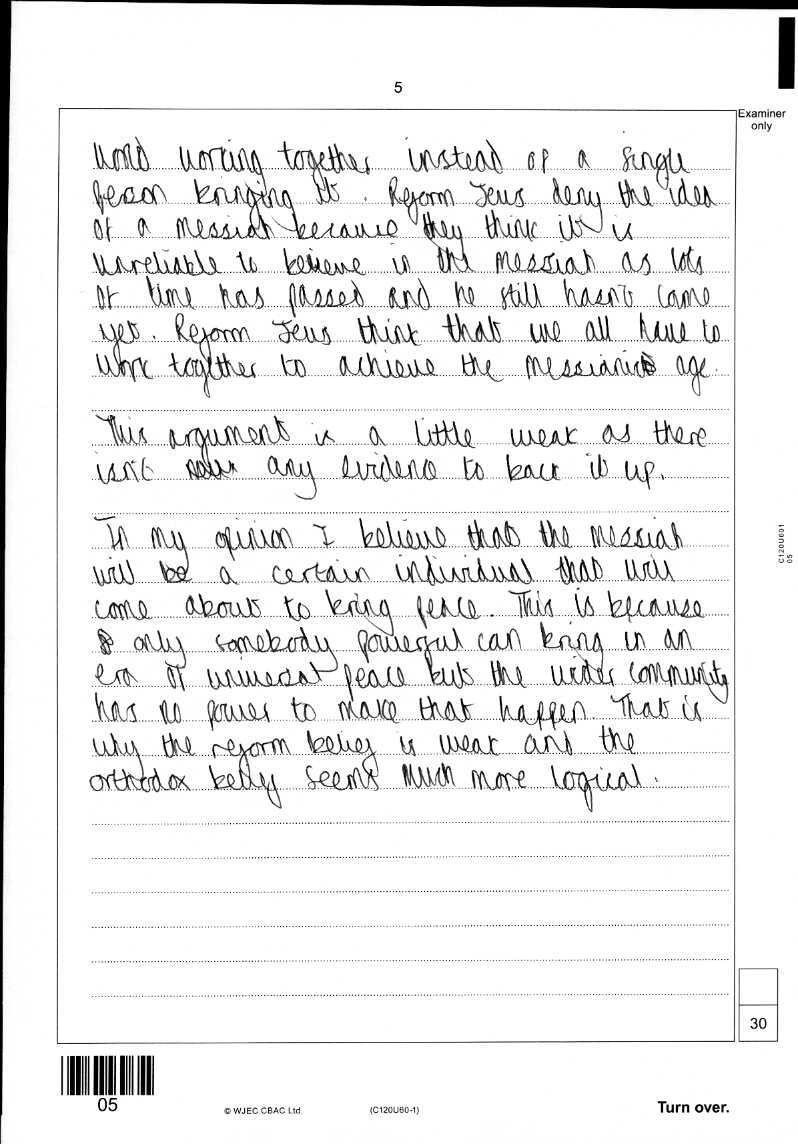 5
Examiner
only
world working together instead of a single
person bringing it. Reform Jews deny the idea
of a messiah because they think it is
unreliable to believe in the messiah as lots
of time has passed and he still hasn't come
yet. Reform Jews think that we all have to
work together to achieve the messianic age.
This argument is a little weak as there
isn't any evidence to back it up.
In my opinion I believe that the messiah
will be a certain individual that will
come about to bring peace. This is because
only somebody powerful can bring in an
era of universal peace but the wider community
has no power to make that happen. That is
why the reform belief is weak and the
orthodox belief seems much more logical.
C120U601
05
30
05
© WJEC CBAC Ltd.
(C120U60-1)
Turn over.